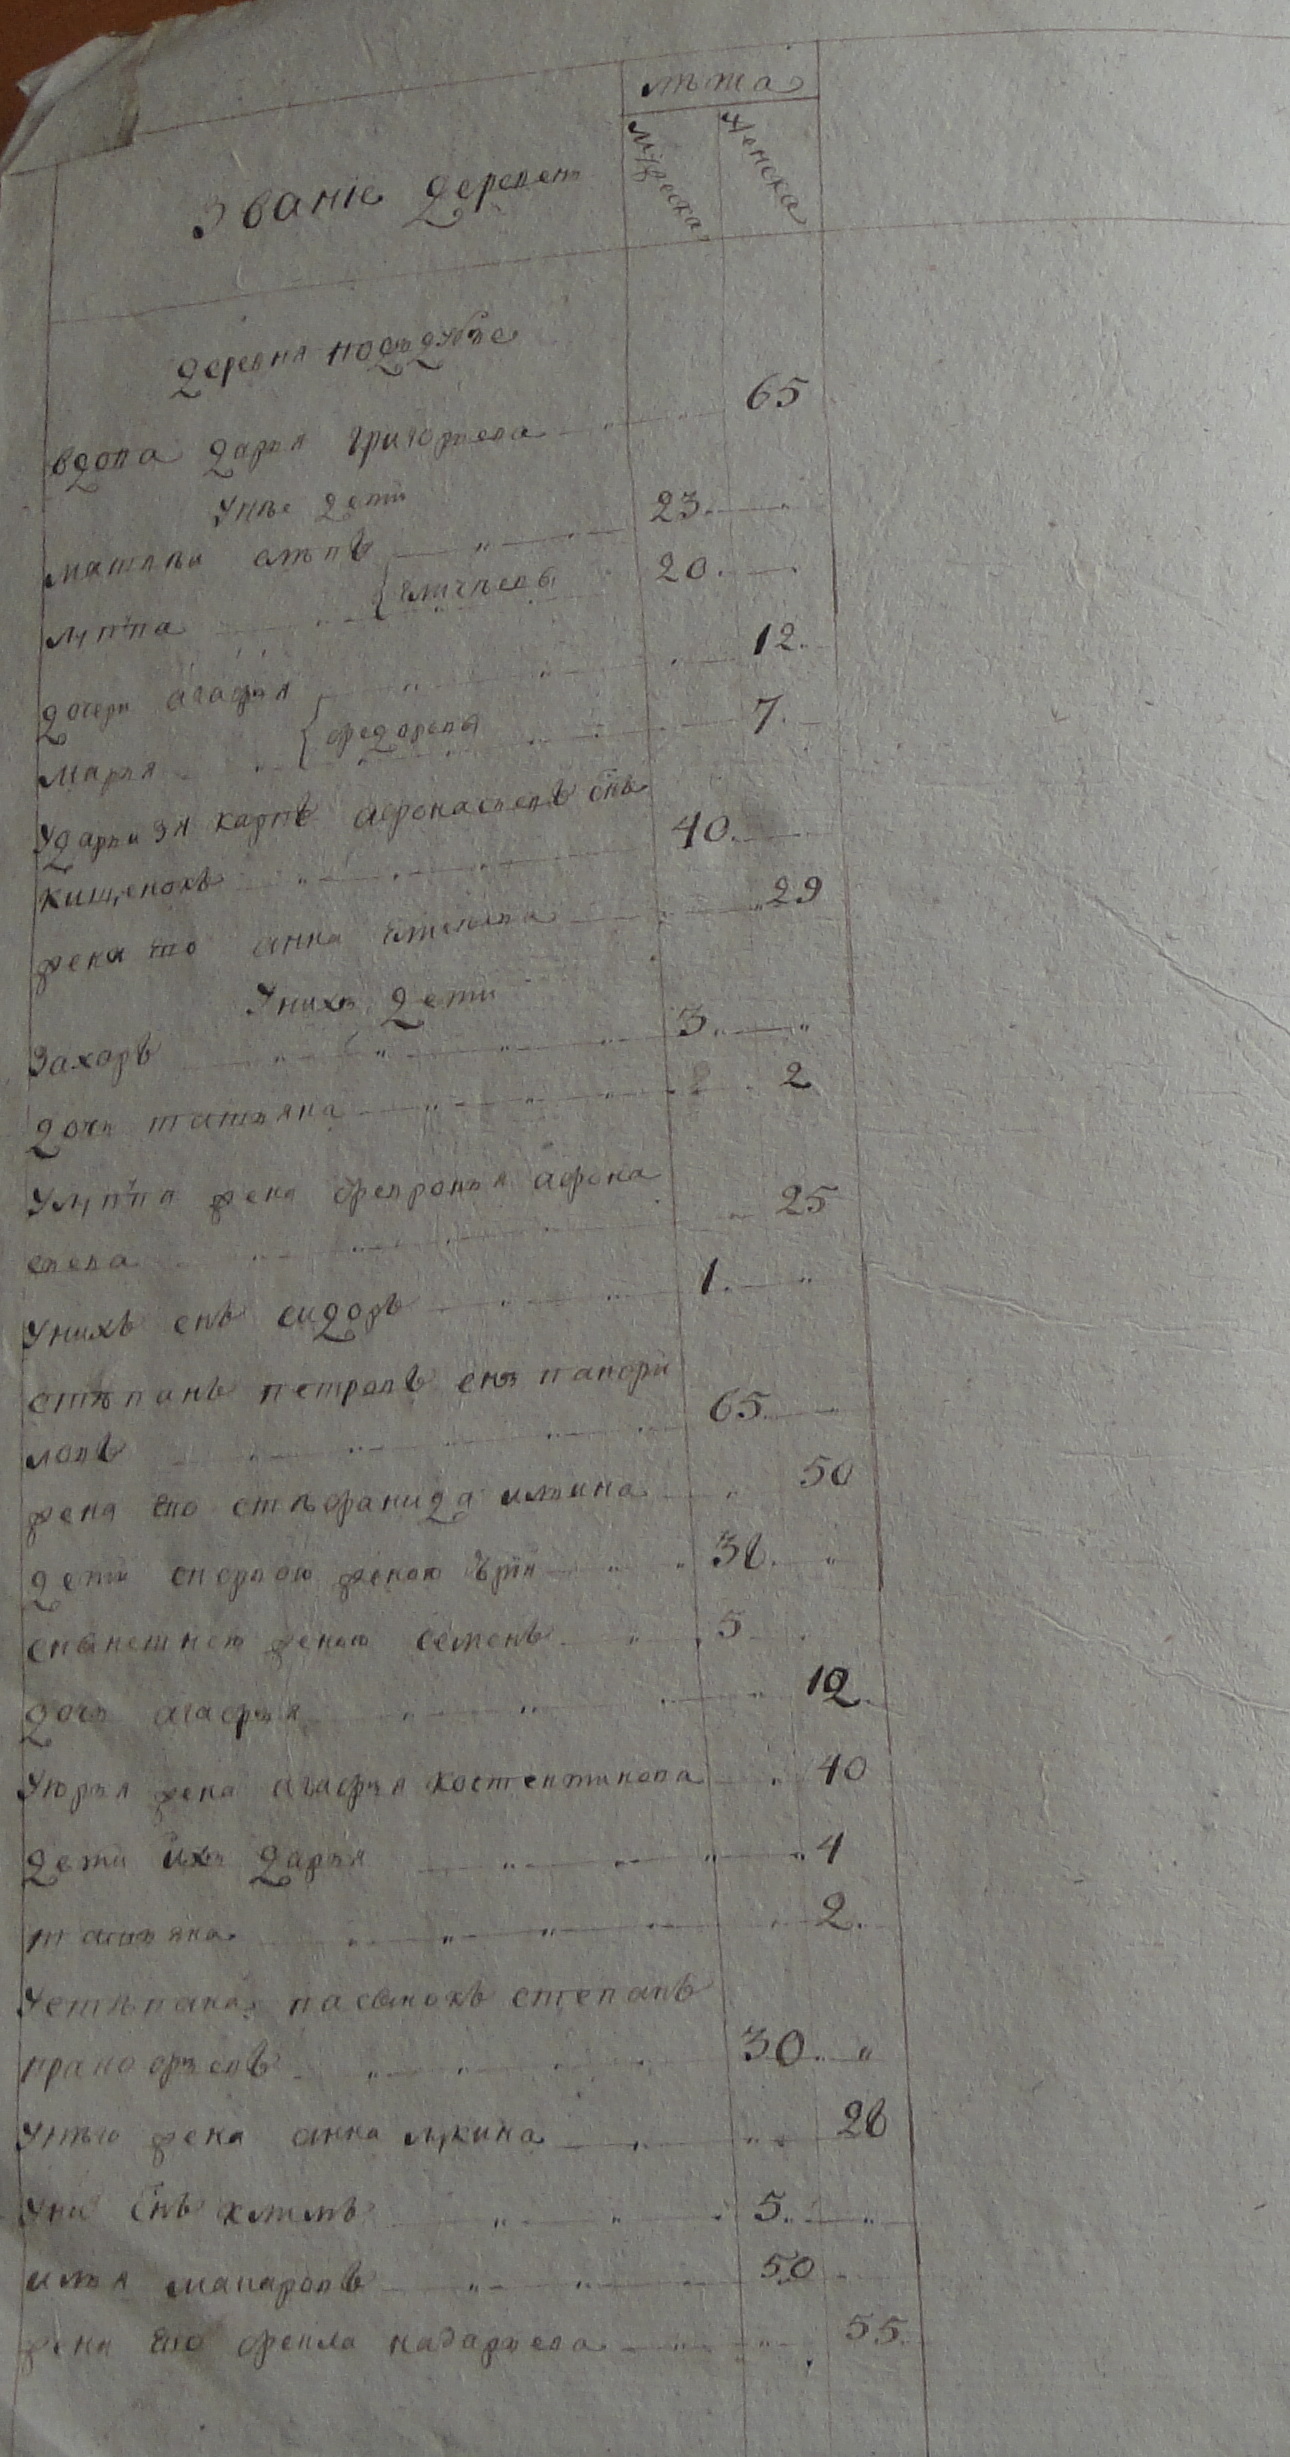 лѣта
Званіе деревень
мужеска
женска
деревня подъдубье
вдова дарья григорьева 65
унѣе дети
матвѣи 23
20
дочери агафья 12
федоровы
марья 7
ударьи зя карпъ афонасьевъ снъ
кищенокъ 40
жена его анна 29
унихъ дети
Захаръ 3
дочь татьяна 2
жена февронья афона
сьева 25
унихъ снъ сидоръ 1
степанъ петровъ снъ
65
жена его стефанида ильина 50
дети спервою женою юрїи 38
снынешнею женою семенъ 5
дочь агафья 12
уюрья жена агафья костентинова 40
дети ихъ дарья 4
татьяна 2
устепана пасынокъ степанъ
прокофьевъ 30
унѣго жена анна лукина 28
уни снъ климъ 5
илья макаровъ 50
жена его фекла назарьева 55